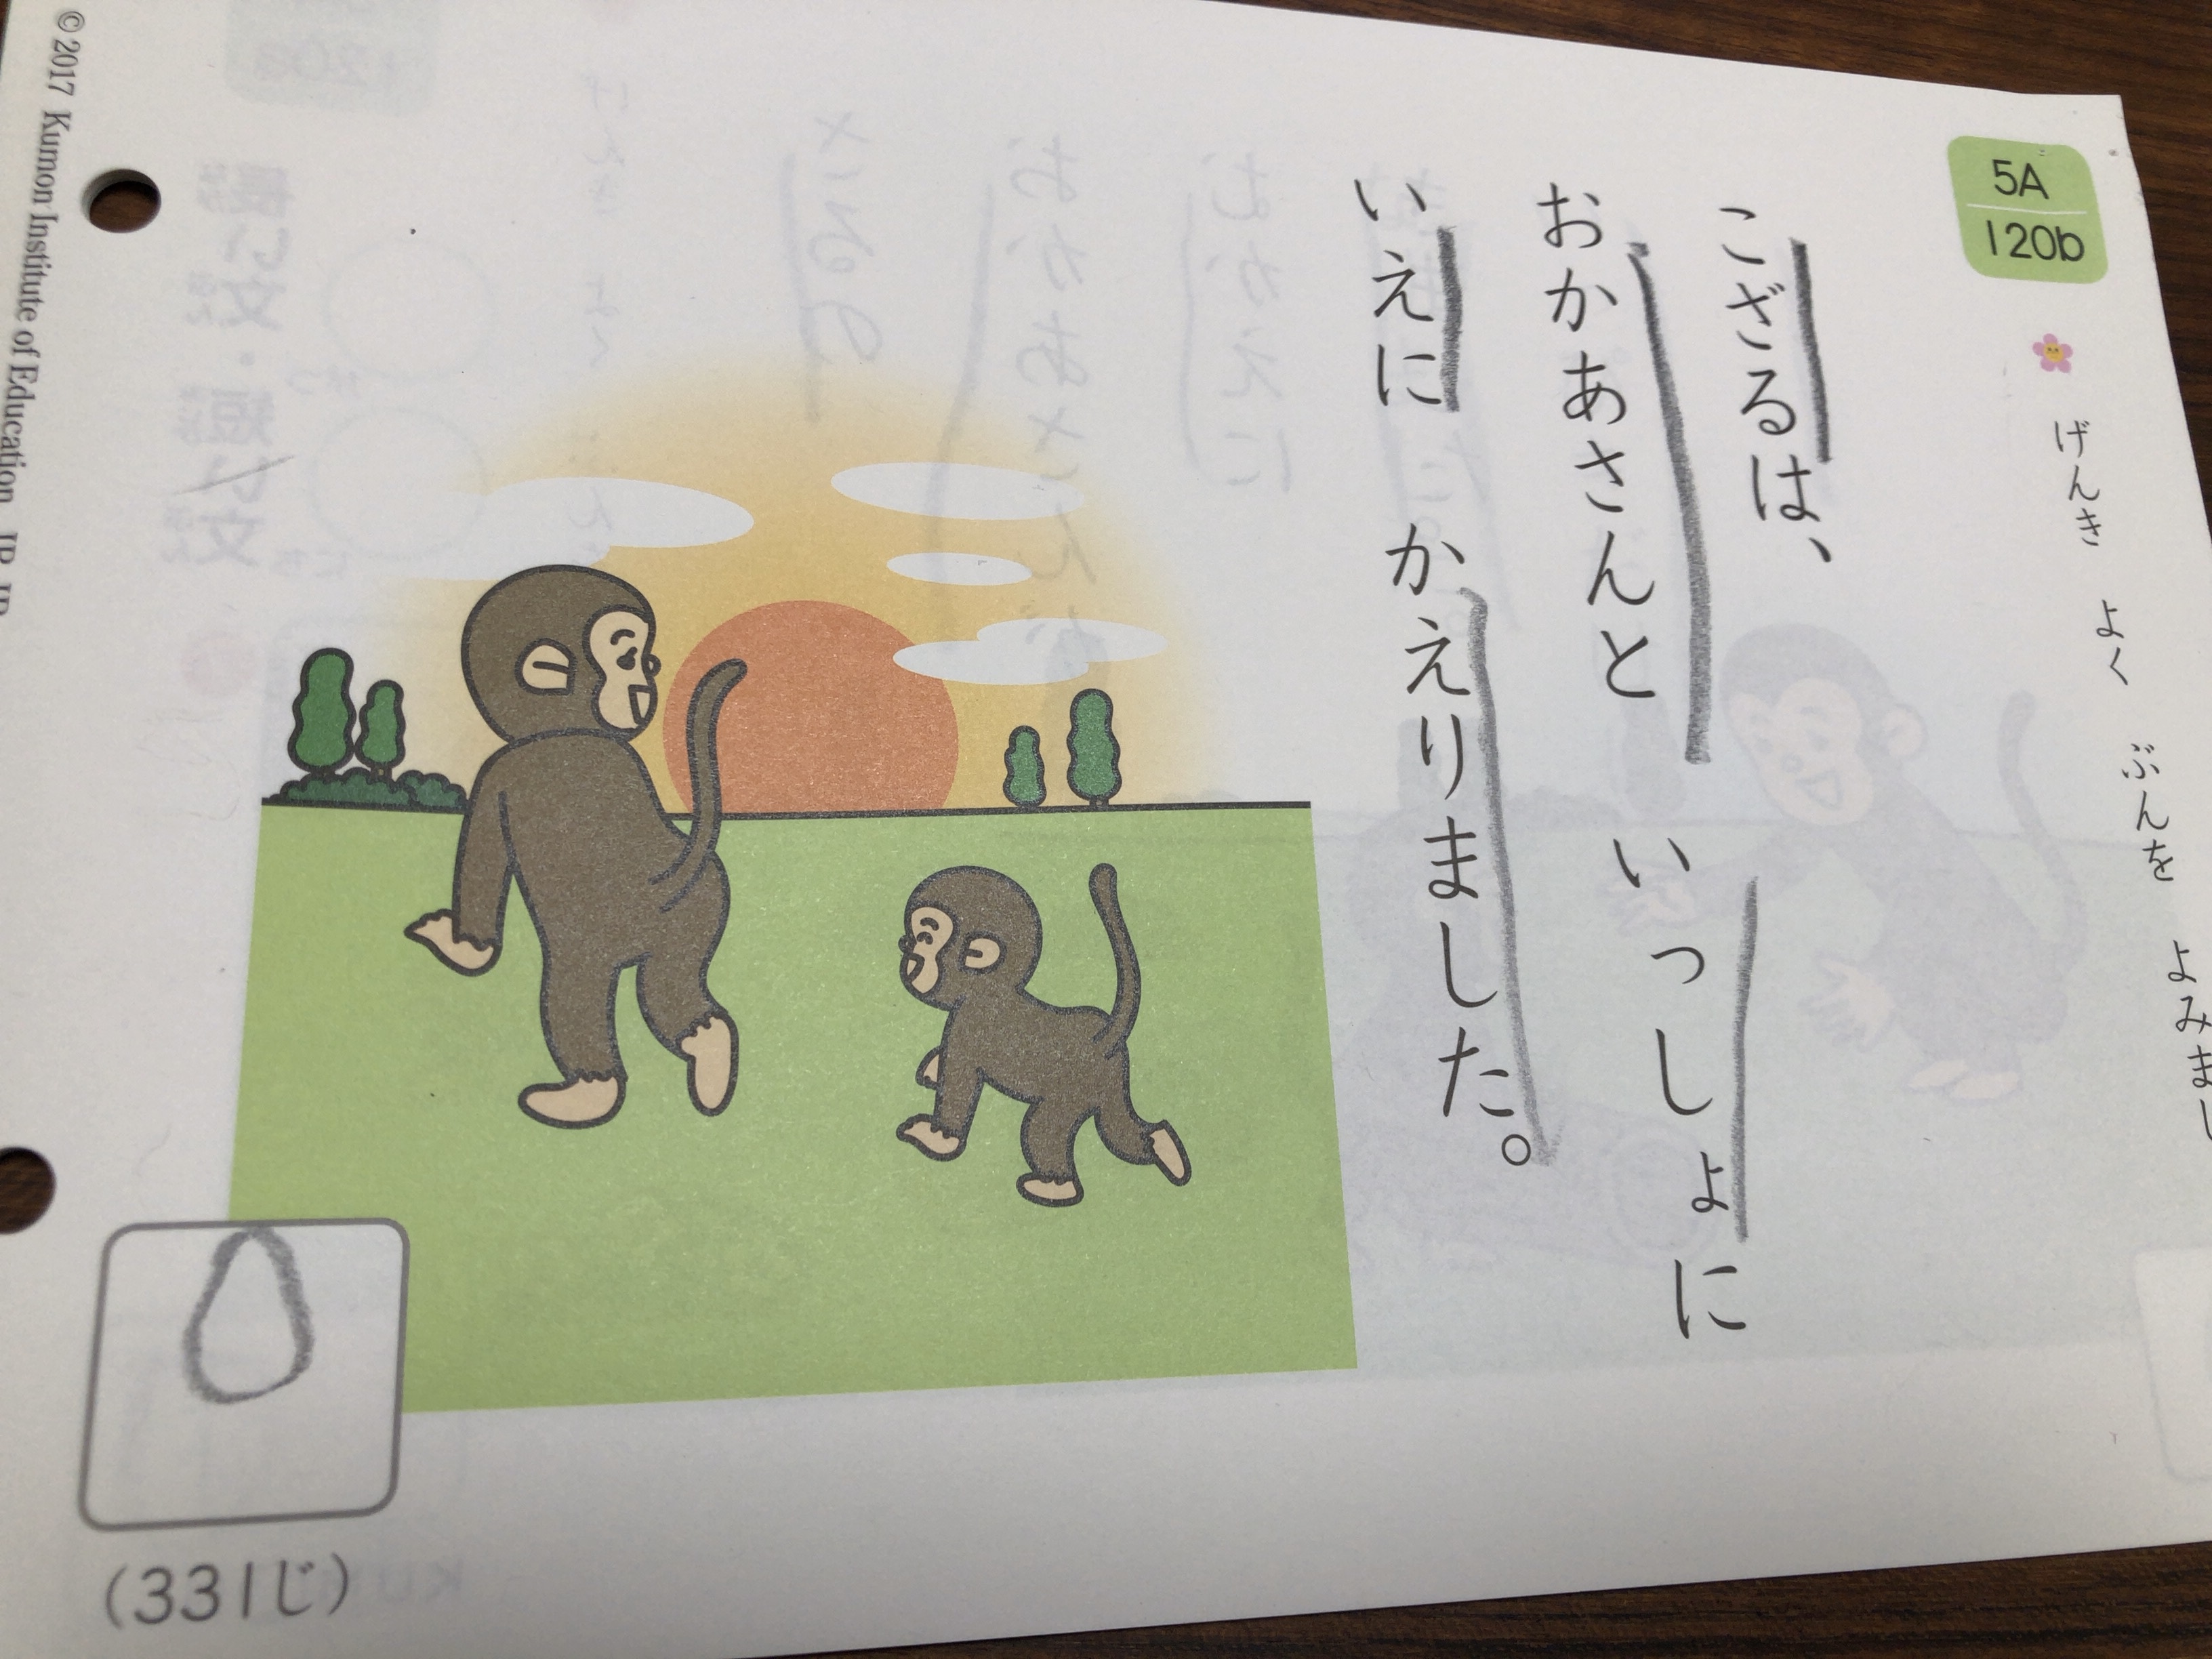 5A
120b
げんき よく ぶんを よみまし
こざるは、
おかあさんと いっしょに
いえに かえりました。
(331じ)
© 2017 Kumon Institute of Education